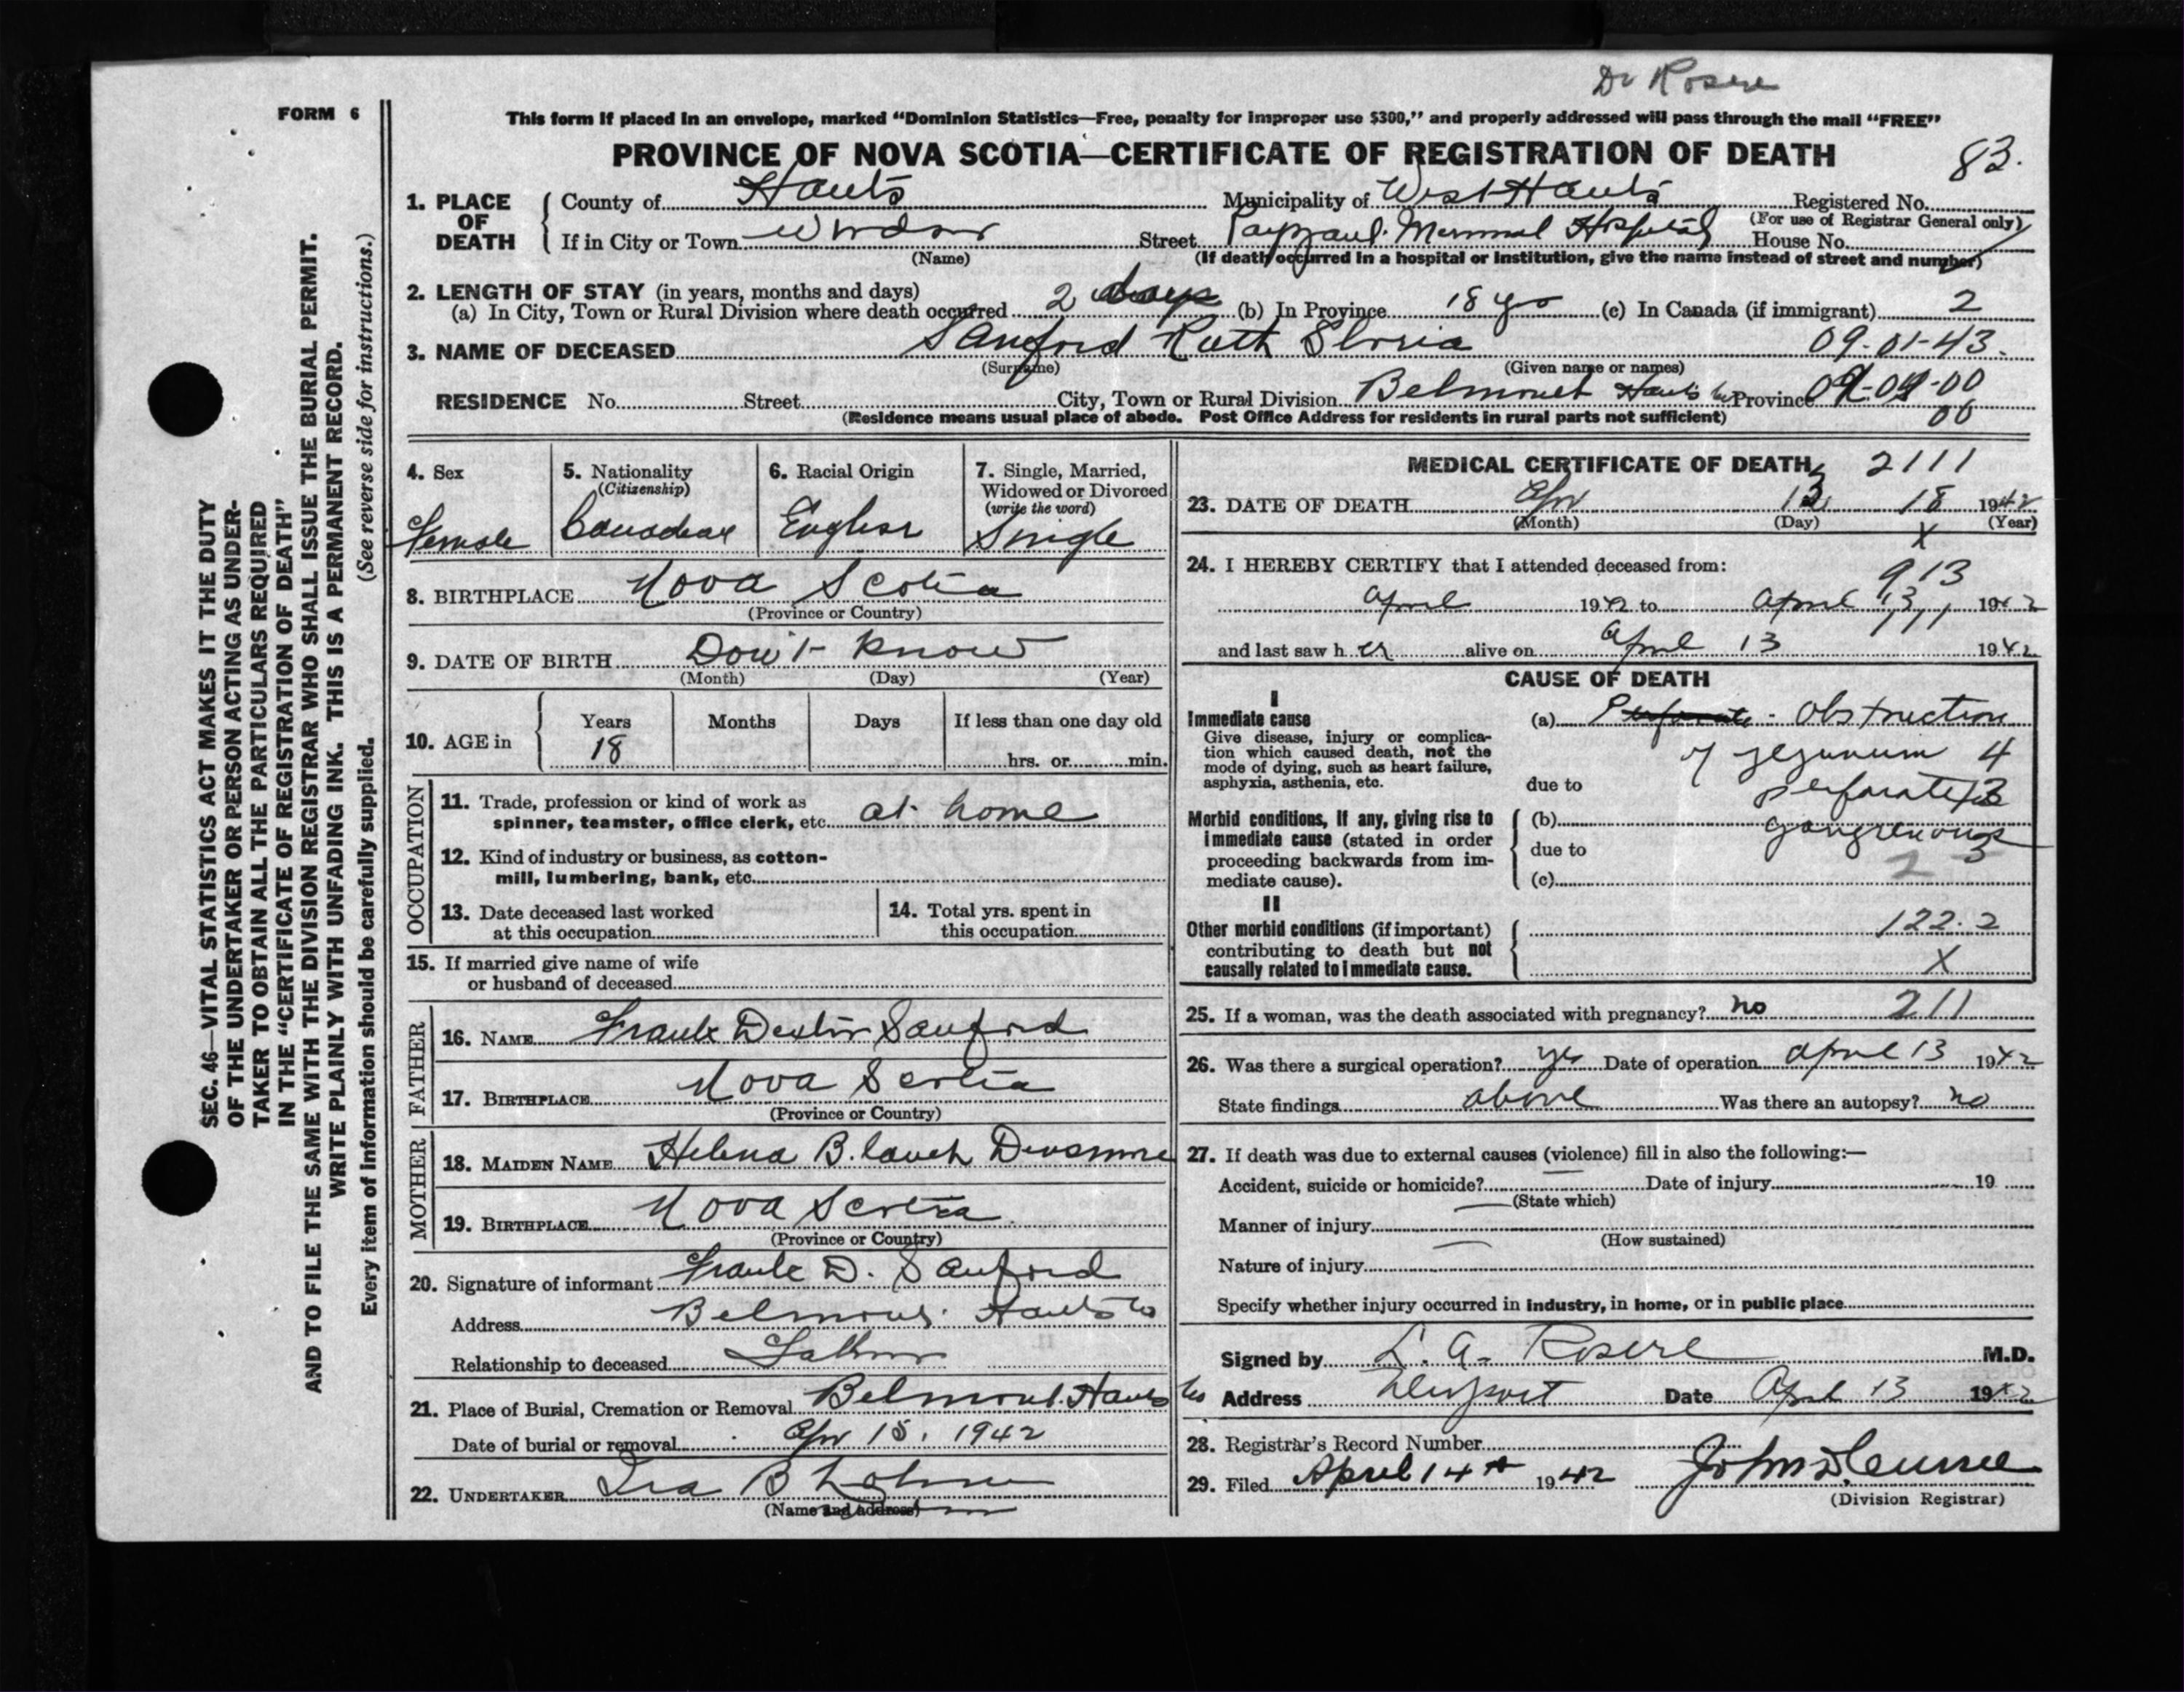 Dr Rosere
FORM 6
This form if placed in an envelope, marked “Dominion Statistics—Free, penalty for improper use $300,” and properly addressed will pass through the mail “FREE”
PROVINCE OF NOVA SCOTIA—CERTIFICATE OF REGISTRATION OF DEATH 83.
1. PLACE OF DEATH
County of Hants Municipality of West Hants Registered No.
(For use of Registrar General only)
If in City or Town Windsor Street Payzant Memorial Hospital House No.
(Name) (If death occurred in a hospital or institution, give the name instead of street and number)
2. LENGTH OF STAY (in years, months and days)
(a) In City, Town or Rural Division where death occurred 2 days (b) In Province 18 yrs (c) In Canada (if immigrant) 2
3. NAME OF DECEASED Sanford Ruth Gloria 09-01-43.
(Surname) (Given name or names)
RESIDENCE No. Street City, Town or Rural Division Belmont Hants Co Province 09-00
00
(Residence means usual place of abode. Post Office Address for residents in rural parts not sufficient)
4. Sex
Female
5. Nationality
(Citizenship)
Canadian
6. Racial Origin
English
7. Single, Married,
Widowed or Divorced
(write the word)
Single
8. BIRTHPLACE Nova Scotia
(Province or Country)
9. DATE OF BIRTH Don't know
(Month) (Day) (Year)
10. AGE in
Years Months Days If less than one day old
18 hrs. or min.
OCCUPATION
11. Trade, profession or kind of work as
spinner, teamster, office clerk, etc. at home
12. Kind of industry or business, as cotton-
mill, lumbering, bank, etc.
13. Date deceased last worked
at this occupation
14. Total yrs. spent in
this occupation
15. If married give name of wife
or husband of deceased
FATHER
16. NAME Frank Dexter Sanford
17. BIRTHPLACE Nova Scotia
(Province or Country)
MOTHER
18. MAIDEN NAME Helena B. lanch Densmore
19. BIRTHPLACE Nova Scotia
(Province or Country)
20. Signature of informant Frank D. Sanford
Address Belmont Hants Co
Relationship to deceased Father
21. Place of Burial, Cremation or Removal Belmont Hants Co
Date of burial or removal Apr 15, 1942
22. UNDERTAKER Ira B
(Name and address)
MEDICAL CERTIFICATE OF DEATH 2111
23. DATE OF DEATH Apr 13 18 1942
(Month) (Day) (Year)
X
24. I HEREBY CERTIFY that I attended deceased from:
913
April 1942 to April 13 1942
111
and last saw h er alive on April 13 1942
CAUSE OF DEATH
I
Immediate cause
Give disease, injury or complica-
tion which caused death, not the
mode of dying, such as heart failure,
asphyxia, asthenia, etc.
(a) Perforate - Obstruction
of jejunum 4
due to perforated
Morbid conditions, if any, giving rise to
immediate cause (stated in order
proceeding backwards from im-
mediate cause).
(b) gangrenous
due to 3
(c) 2
II
Other morbid conditions (if important)
contributing to death but not
causally related to immediate cause.
122.2
X
25. If a woman, was the death associated with pregnancy? no 211
26. Was there a surgical operation? yes Date of operation April 13 1942
State findings above Was there an autopsy? no
27. If death was due to external causes (violence) fill in also the following:—
Accident, suicide or homicide? Date of injury 19
(State which)
Manner of injury
(How sustained)
Nature of injury
Specify whether injury occurred in industry, in home, or in public place
Signed by L. A. Rosere M.D.
Address Newport Date April 13 1942
28. Registrar's Record Number
29. Filed April 14th 1942 John
(Division Registrar)
SEC. 46—VITAL STATISTICS ACT MAKES IT THE DUTY
OF THE UNDERTAKER OR PERSON ACTING AS UNDER-
TAKER TO OBTAIN ALL THE PARTICULARS REQUIRED
IN THE “CERTIFICATE OF REGISTRATION OF DEATH”
AND TO FILE THE SAME WITH THE DIVISION REGISTRAR WHO SHALL ISSUE THE BURIAL PERMIT.
WRITE PLAINLY WITH UNFADING INK. THIS IS A PERMANENT RECORD.
Every item of information should be carefully supplied. (See reverse side for instructions.)